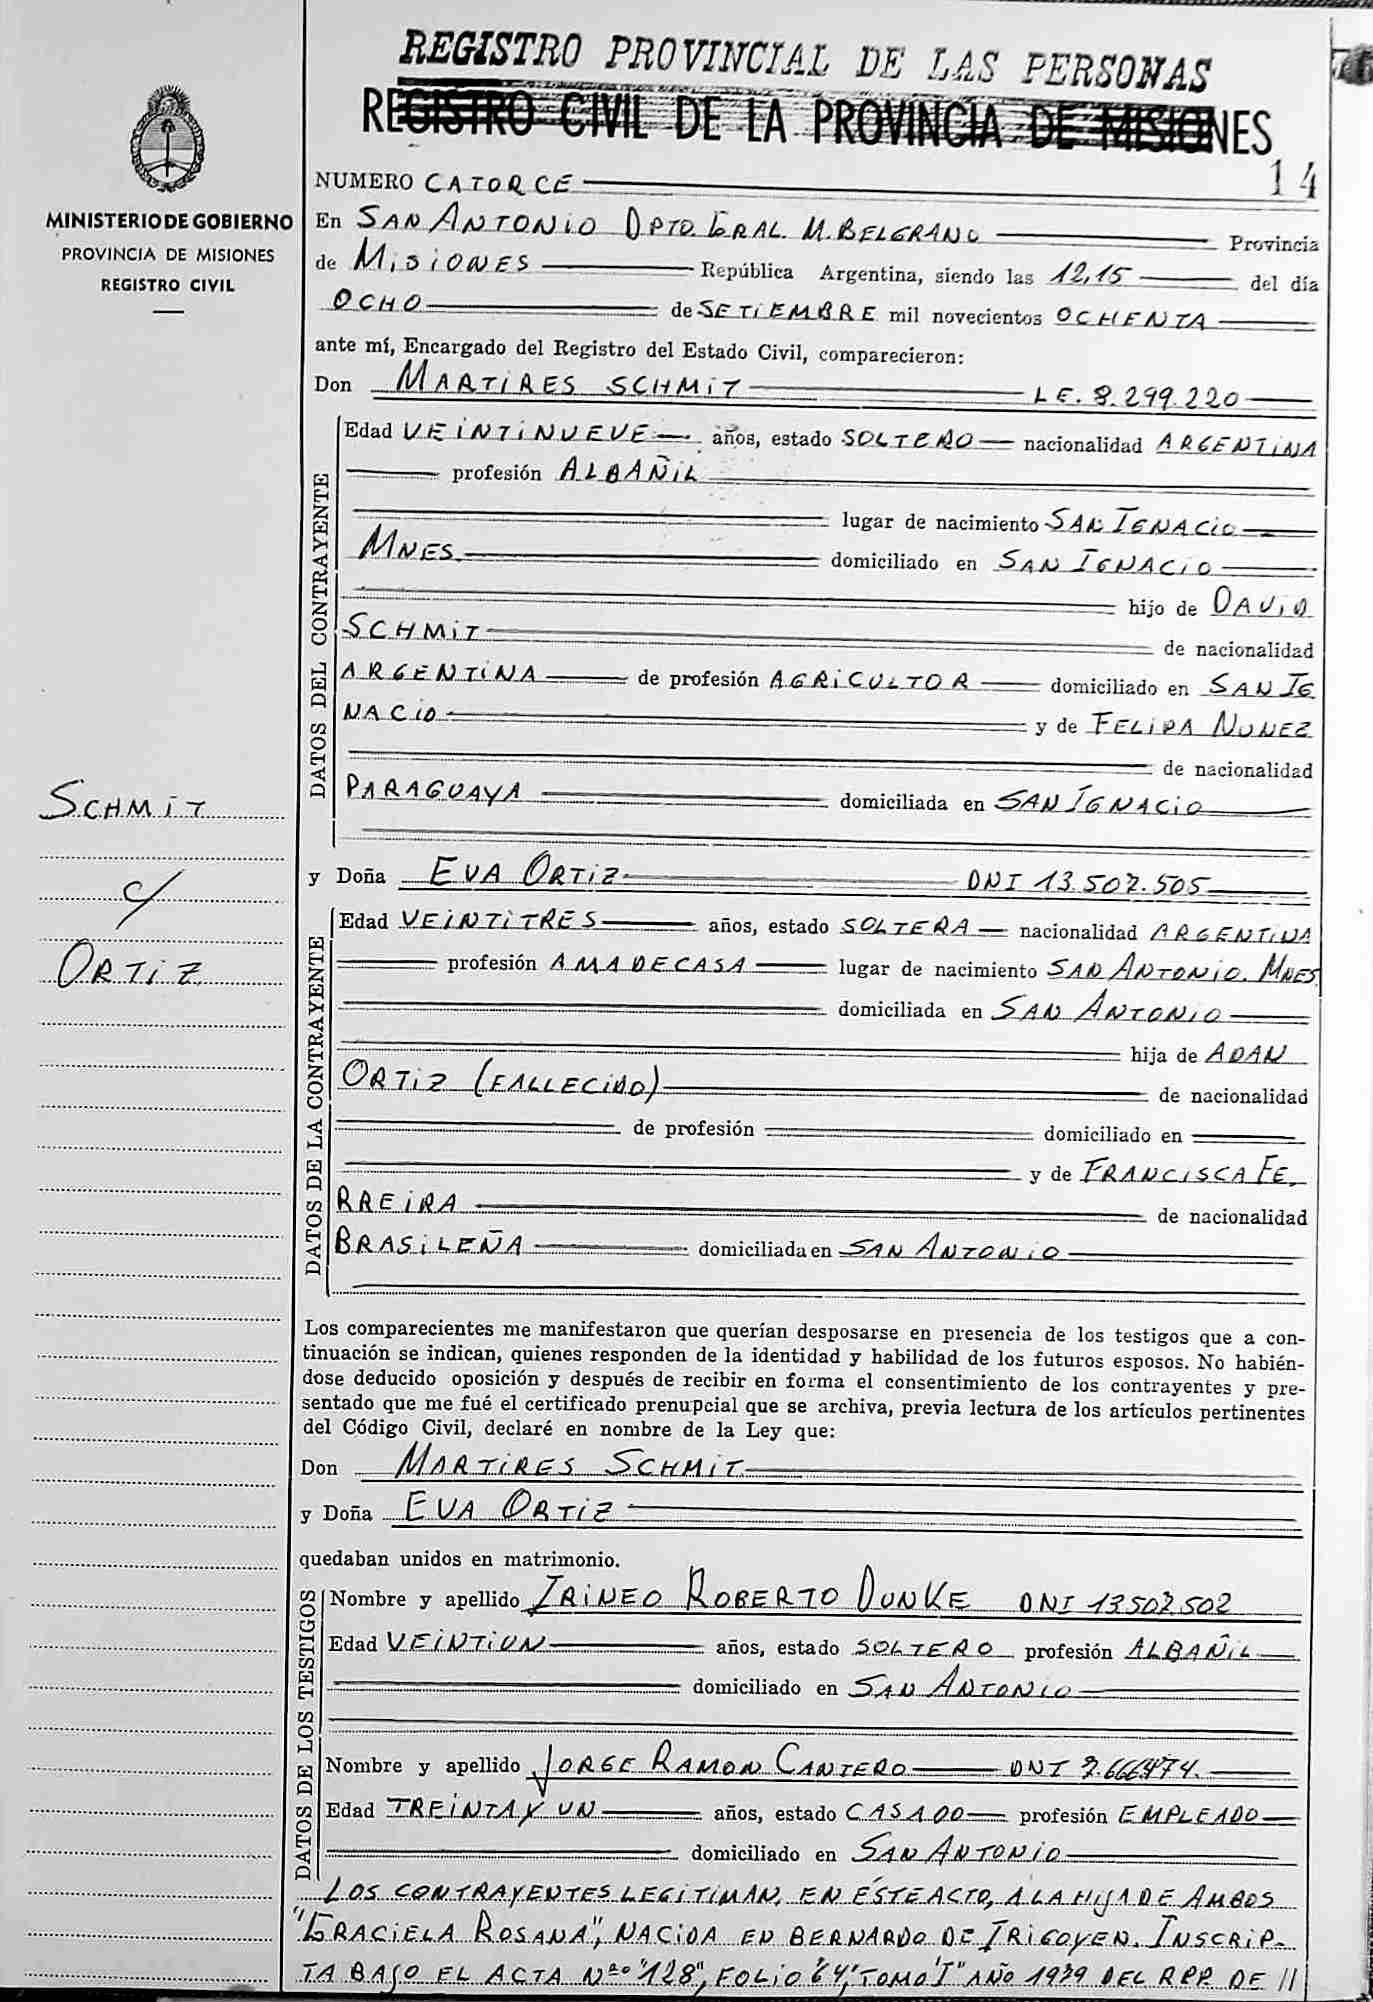 REGISTRO PROVINCIAL DE LAS PERSONAS
REGISTRO CIVIL DE LA PROVINCIA DE MISIONES
14
MINISTERIO DE GOBIERNO
PROVINCIA DE MISIONES
REGISTRO CIVIL
NUMERO CATORCE
En SAN ANTONIO DPTO. GRAL. M. BELGRANO Provincia
de MISIONES República Argentina, siendo las 12,15 del día
OCHO de SETIEMBRE mil novecientos OCHENTA
ante mí, Encargado del Registro del Estado Civil, comparecieron:
Don MARTIRES SCHMIT L.E. 8.299.220
DATOS DEL CONTRAYENTE
Edad VEINTINUEVE años, estado SOLTERO nacionalidad ARGENTINA
profesión ALBAÑIL
lugar de nacimiento SAN IGNACIO
MNES. domiciliado en SAN IGNACIO
hijo de DAVID
SCHMIT de nacionalidad
ARGENTINA de profesión AGRICULTOR domiciliado en SAN IG
NACIO y de FELIPA NUNEZ
de nacionalidad
PARAGUAYA domiciliada en SAN IGNACIO
SCHMIT
c/
ORTIZ
y Doña EVA ORTIZ DNI 13.507.505
DATOS DE LA CONTRAYENTE
Edad VEINTITRES años, estado SOLTERA nacionalidad ARGENTINA
profesión AMA DE CASA lugar de nacimiento SAN ANTONIO. MNES.
domiciliada en SAN ANTONIO
hija de ADAN
ORTIZ (FALLECIDO) de nacionalidad
de profesión domiciliado en
y de FRANCISCA FE.
RREIRA de nacionalidad
BRASILEÑA domiciliada en SAN ANTONIO
Los comparecientes me manifestaron que querían desposarse en presencia de los testigos que a con-
tinuación se indican, quienes responden de la identidad y habilidad de los futuros esposos. No habién-
dose deducido oposición y después de recibir en forma el consentimiento de los contrayentes y pre-
sentado que me fué el certificado prenupcial que se archiva, previa lectura de los artículos pertinentes
del Código Civil, declaré en nombre de la Ley que:
Don MARTIRES SCHMIT
y Doña EVA ORTIZ
quedaban unidos en matrimonio.
DATOS DE LOS TESTIGOS
Nombre y apellido IRINEO ROBERTO DUNKE DNI 13.507.502
Edad VEINTIUN años, estado SOLTERO profesión ALBAÑIL
domiciliado en SAN ANTONIO
Nombre y apellido JORGE RAMON CANTERO DNI 7.666.474.
Edad TREINTA Y UN años, estado CASADO profesión EMPLEADO
domiciliado en SAN ANTONIO
LOS CONTRAYENTES LEGITIMAN, EN ESTE ACTO, A LA HIJA DE AMBOS
"GRACIELA ROSANA", NACIDA EN BERNARDO DE IRIGOYEN. INSCRIP-
TA BAJO EL ACTA Nº "128", FOLIO "64", TOMO "I" AÑO 1979 DEL RPP. DE //